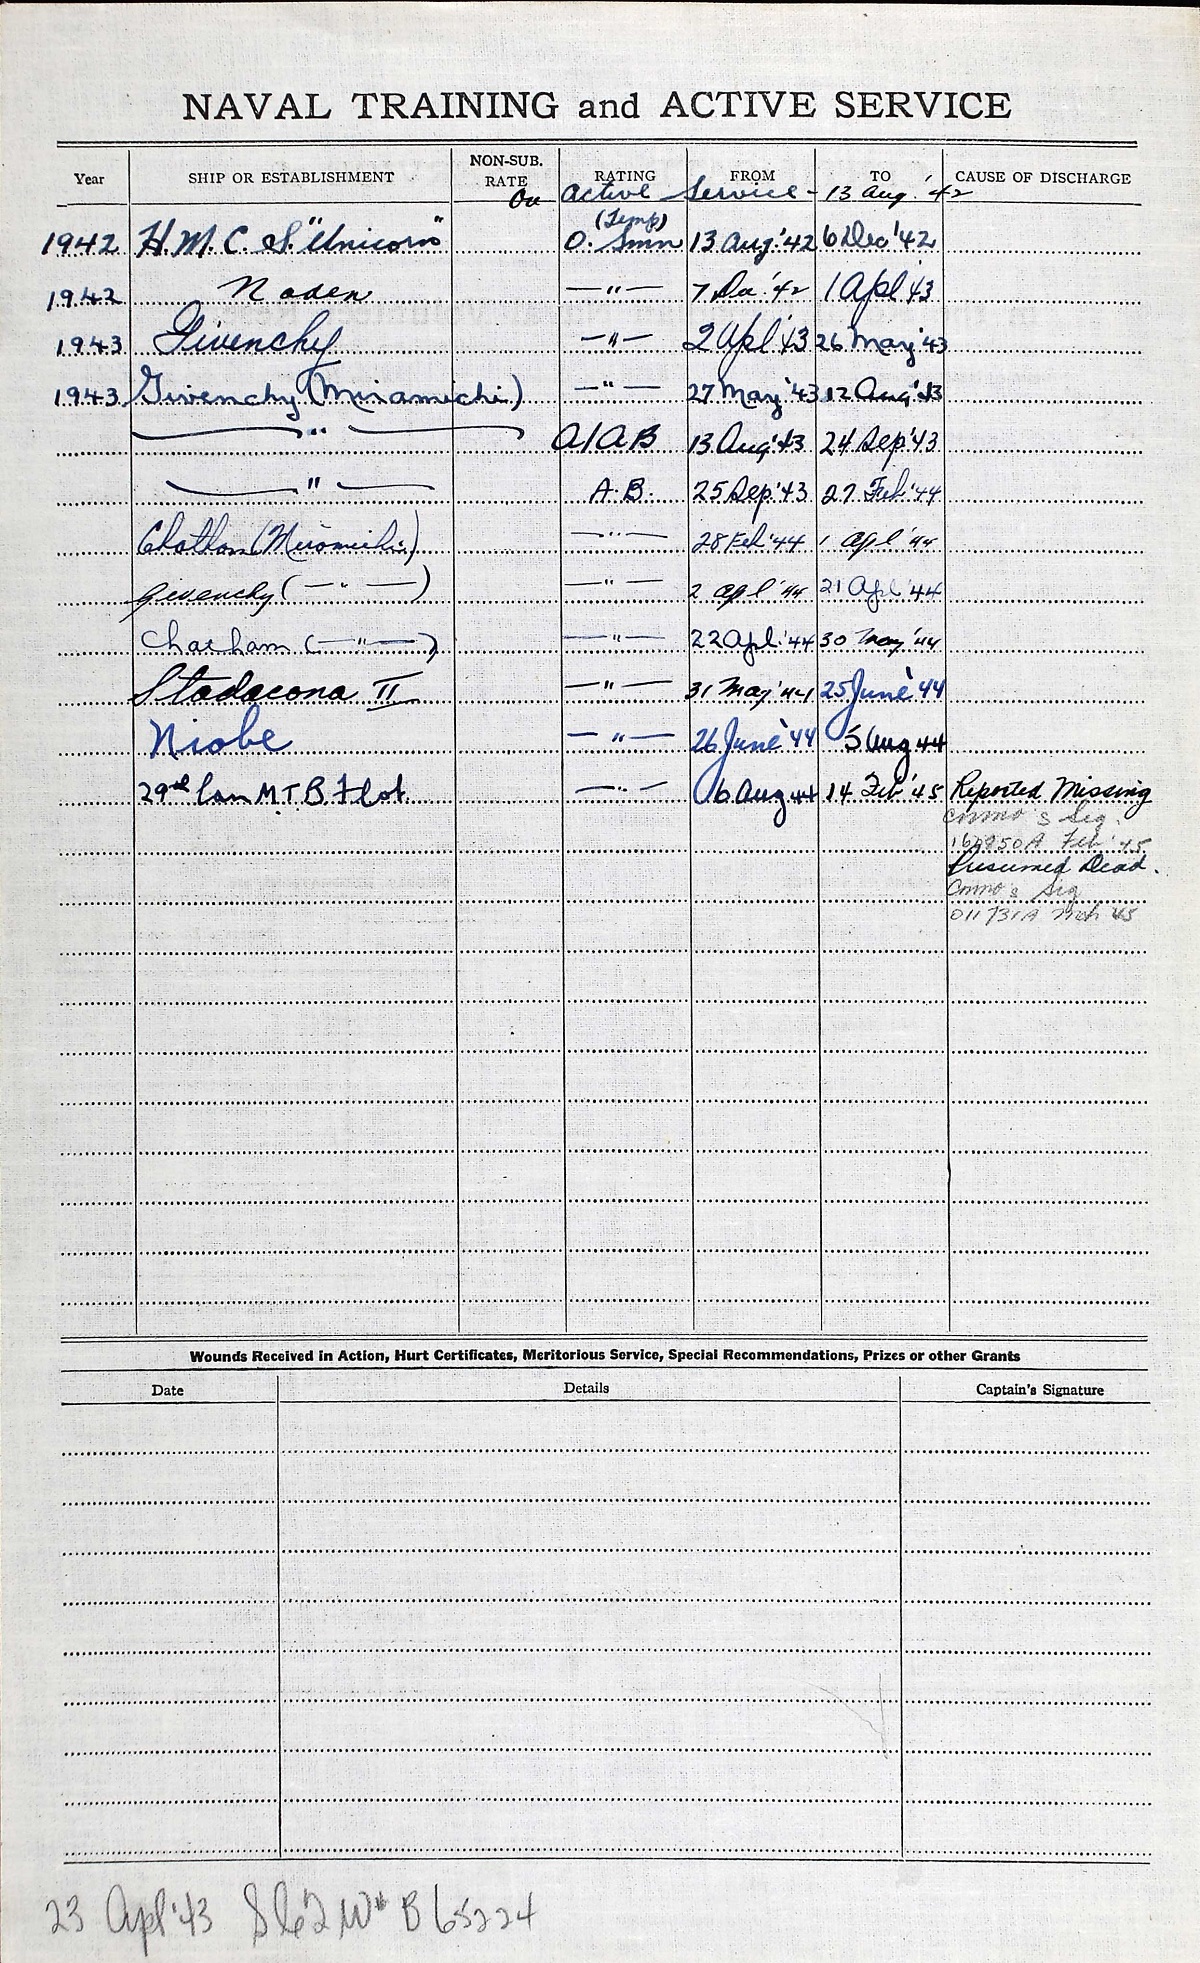 NAVAL TRAINING and ACTIVE SERVICE
Year SHIP OR ESTABLISHMENT NON-SUB. RATE RATING FROM TO CAUSE OF DISCHARGE
On Active Service - 13 Aug. '42
1942 H.M.C.S. "Unicorn" (Temp) O. Smn 13 Aug. '42 6 Dec '42
1942 Naden —"— 7 Dec. '42 1 Apl '43
1943 Givenchy —"— 2 Apl '43 26 May '43
1943 Givenchy (Miramichi) —"— 27 May '43 12 Aug '43
—"— A/AB 13 Aug '43 24 Sep '43
—"— A.B. 25 Sep '43 27 Feb '44
Chatham (Miramichi) —"— 28 Feb '44 1 Apl '44
Givenchy (—"—) —"— 2 Apl '44 21 Apl '44
Chatham (—"—) —"— 22 Apl. '44 30 May '44
Stadacona II —"— 31 May '44 25 June '44
Niobe —"— 26 June '44 5 Aug 44
29th Can M.T.B Flot —"— 6 Aug 44 14 Feb '45 Reported Missing
Sig.
Feb. '45
Presumed Dead.
Sig
011731A Mch 45
Wounds Received in Action, Hurt Certificates, Meritorious Service, Special Recommendations, Prizes or other Grants
Date Details Captain's Signature
23 Apl '43 B 65224